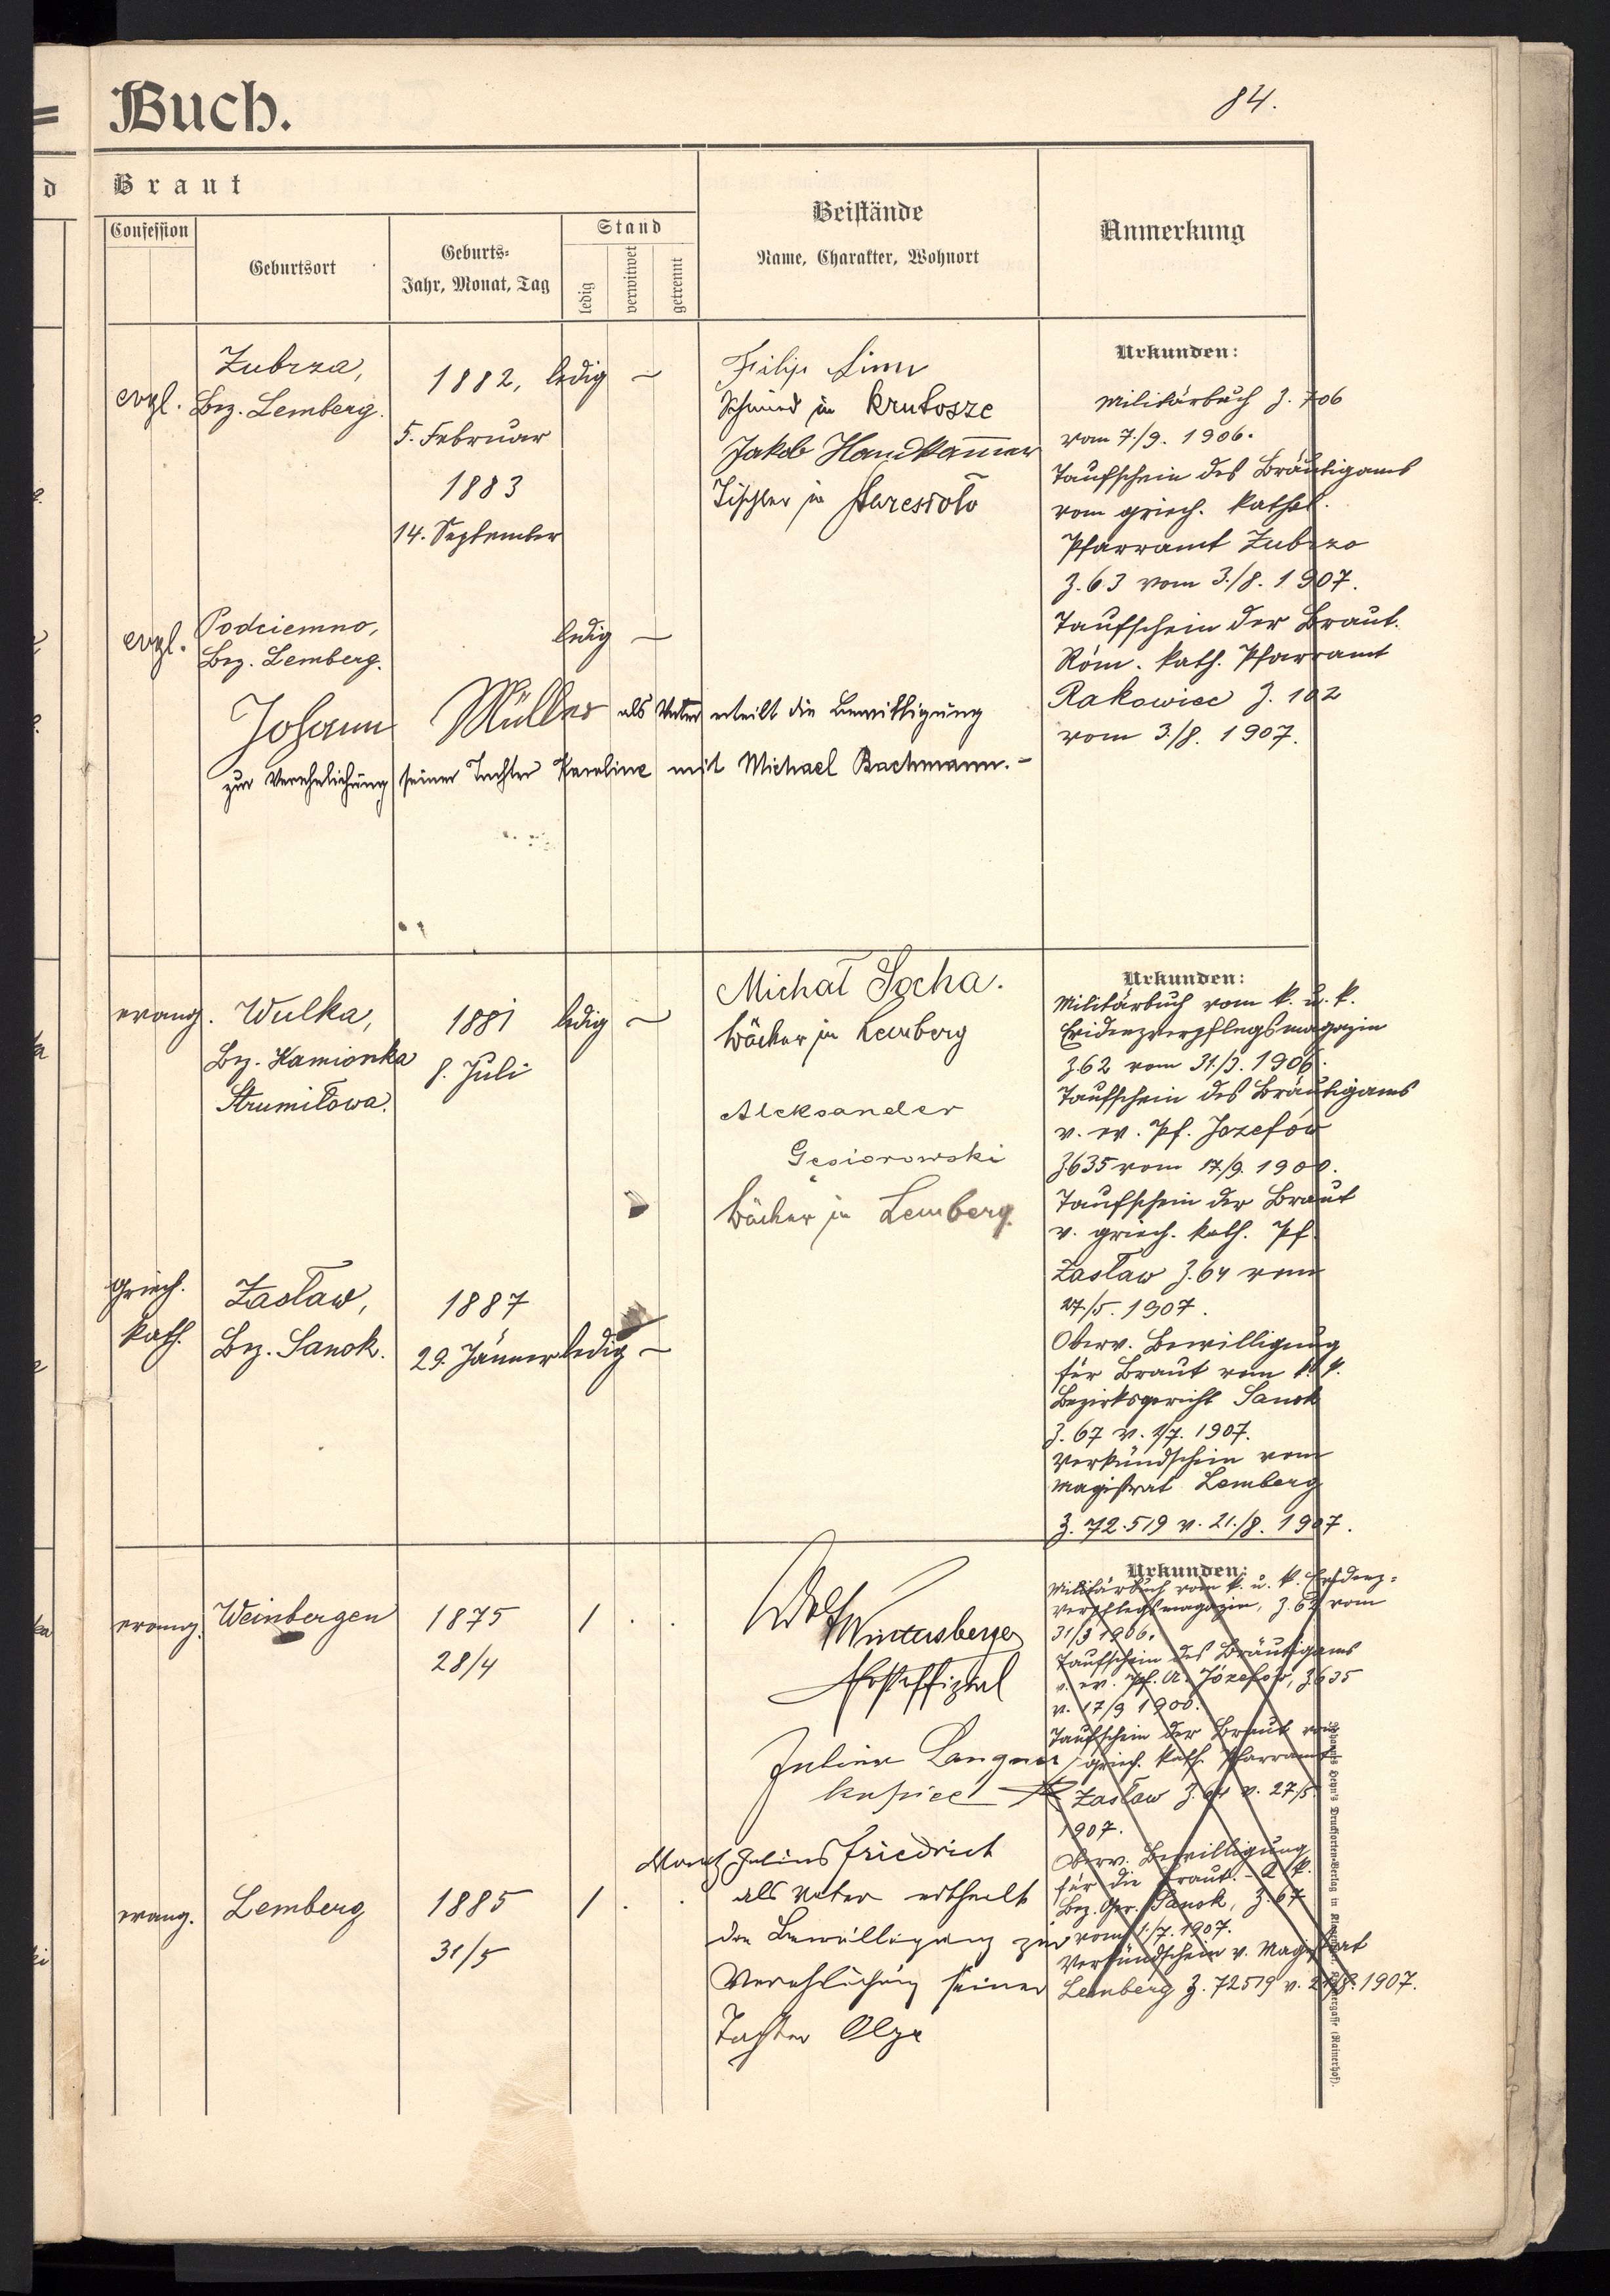 Buch.
84.
Braut
Confession
Geburtsort
Geburts-
Jahr, Monat, Tag
Stand
ledig
verwitwet
getrennt
Beistände
Name, Charakter, Wohnort
Anmerkung
evgl.
Zubrza,
Bez. Lemberg.
1882,
5. Februar
1883
14. September
ledig —
Filip Linn
Schmied in Krutosze
Jakob Handkammer
Tischler in
Urkunden:
Militärbuch Z. 706
vom 7./9. 1906.
Taufschein des Bräutigams
vom griech. kathol.
Pfarramt Zubrzo
Z. 63 vom 3./8. 1907.
Taufschein der Braut.
Röm. kath. Pfarramt
Rakowiec Z. 102
vom 3./8. 1907.
evgl.
Podciemno,
Bez. Lemberg.
ledig —
Johann Müller als Vater erteilt die Bewilligung
zur Verehelichung seiner Tochter Karoline mit Michael Bachmann. –
evang.
Wulka,
Bez. Kamionka
Strumiłowa.
1881
8. Juli
ledig —
Michał Socha.
Bäcker in Lemberg
Aleksander
Gęsiorowski
Bäcker in Lemberg.
Urkunden:
Militärbuch vom k. u. k.
Evidenzverpflegsmagazin
Z 62 vom 31./3. 1906.
Taufschein des Bräutigams
v. ev. Pf. Jozefów
Z 635 vom 17./9. 1900.
Taufschein der Braut
v. griech. kath. Pf.
Zasław Z. 64 vom
27./5. 1907.
Oberv. Bewilligung
für Braut vom k. k.
Bezirksgericht Sanok
Z. 67 v. 1/7. 1907.
Verkündschein vom
Magistrat Lemberg
Z. 72.519 v. 21./8. 1907.
griech.
kath.
Zasław,
Bez. Sanok.
1887
29. Jänner
ledig —
evang.
Weinbergen
1875
28/4
1 . .
Wolf
Wintersberger
Postoffizial
Julius Langner
kupiec
Urkunden:
Militärbuch vom k. u. k. Evidenz-
verpflegsmagazin, Z. 62 vom
31/3 1906.
Taufschein des Bräutigams
v. ev. Pf. A. Józefow, Z 635
v. 17/9 1900.
Taufschein der Braut vom
griech. kath. Pfarramt
Zasław Z. 64 v. 27/5
1907.
Oberv. Bewilligung
für die Braut. – k k.
Bez. Ger. Sanok, Z. 67
vom 1./7. 1907.
Verkündschein v. Magistrat
Lemberg Z. 72519 v. 21/8. 1907.
evang.
Lemberg
1885
31/5
1 . .
Julius Friedrich
als Vater ertheilt
die Bewilligung zur
Verehlichung seiner
Tochter Olga